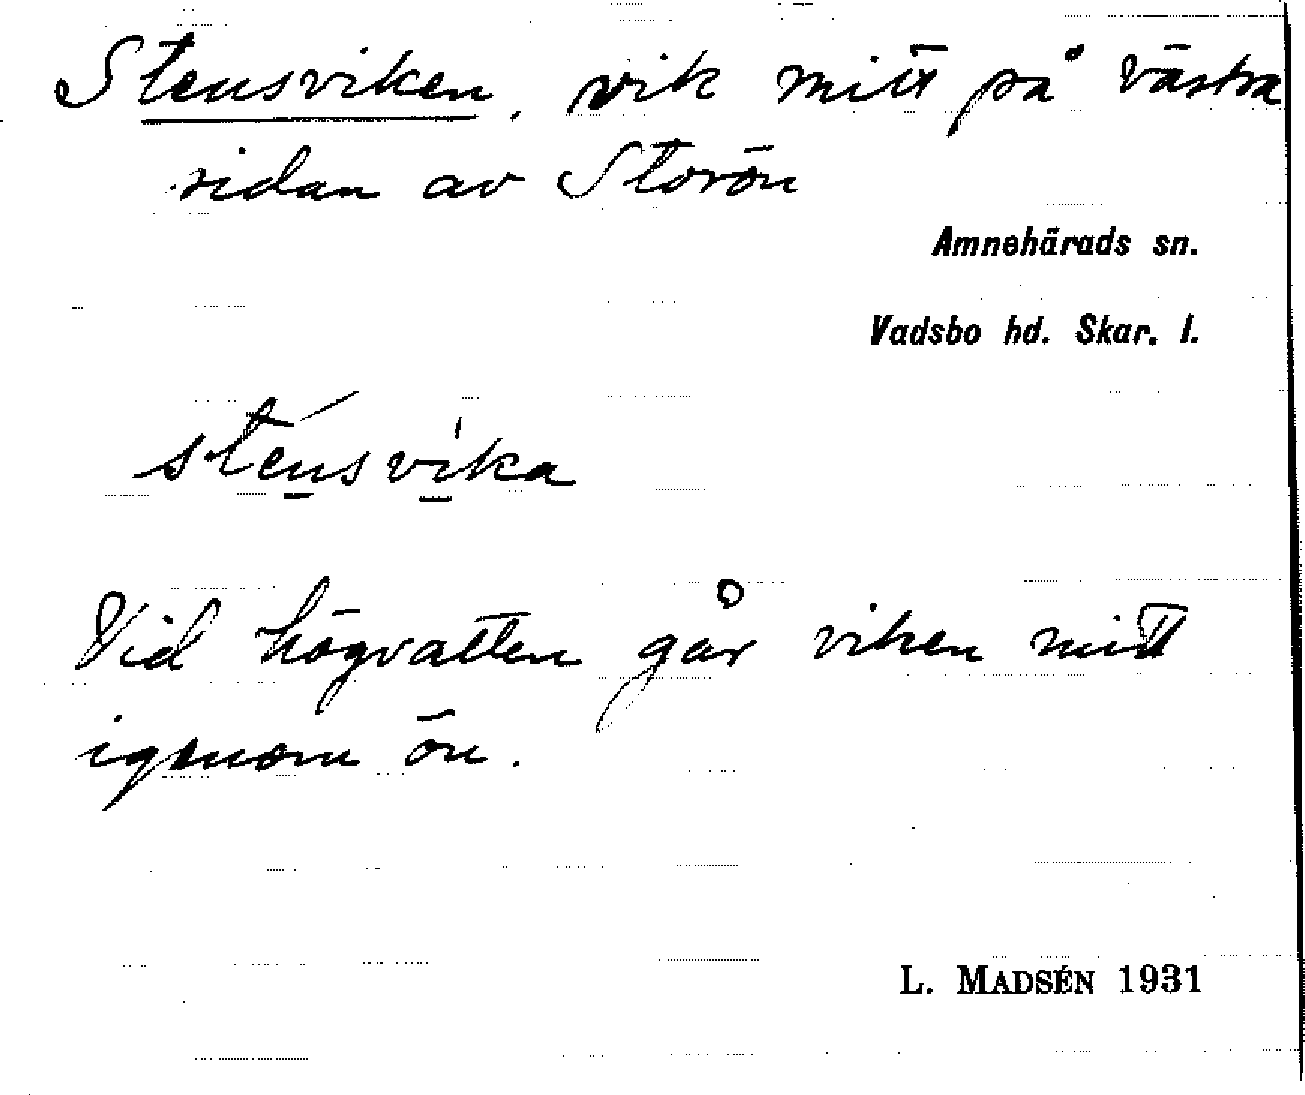 Stensviken, vik mitt på västra
sidan av Storön
Amnehärads sn.
Vadsbo hd. Skar. l.
stensvika
Vid högvatten går viken mitt
igenom ön.
L. MADSÉN 1931